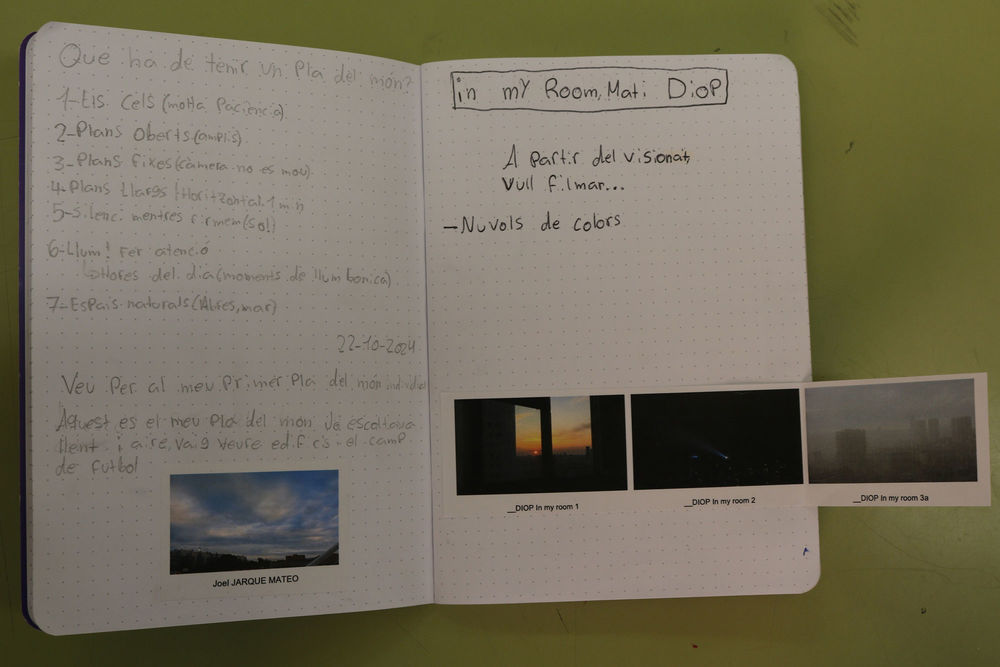 Que ha de tenir un Pla del món?
1-Els Cels (molta Paciència)
2-Plans oberts (amplis)
3-Plans fixes (càmera no es mou)
4-Plans Llargs Horitzontal 1 min
5-Silenci mentres firmem (so!)
6-Llum! Fer atenció
Hores del dia (moments de llum bonica)
7-Espais naturals (Abres, mar)
22-10-2024
Veu Per al meu Primer Pla del món individual
Aquest es el meu Pla del món. Va escoltava
i aire, vaig veure edificis i el camp
de futbol
Joel JARQUE MATEO
in mY Room, Mati Diop
A partir del visionat,
Vull filmar...
-Nuvols de colors
__DIOP In my room 1
__DIOP In my room 2
__DIOP In my room 3a